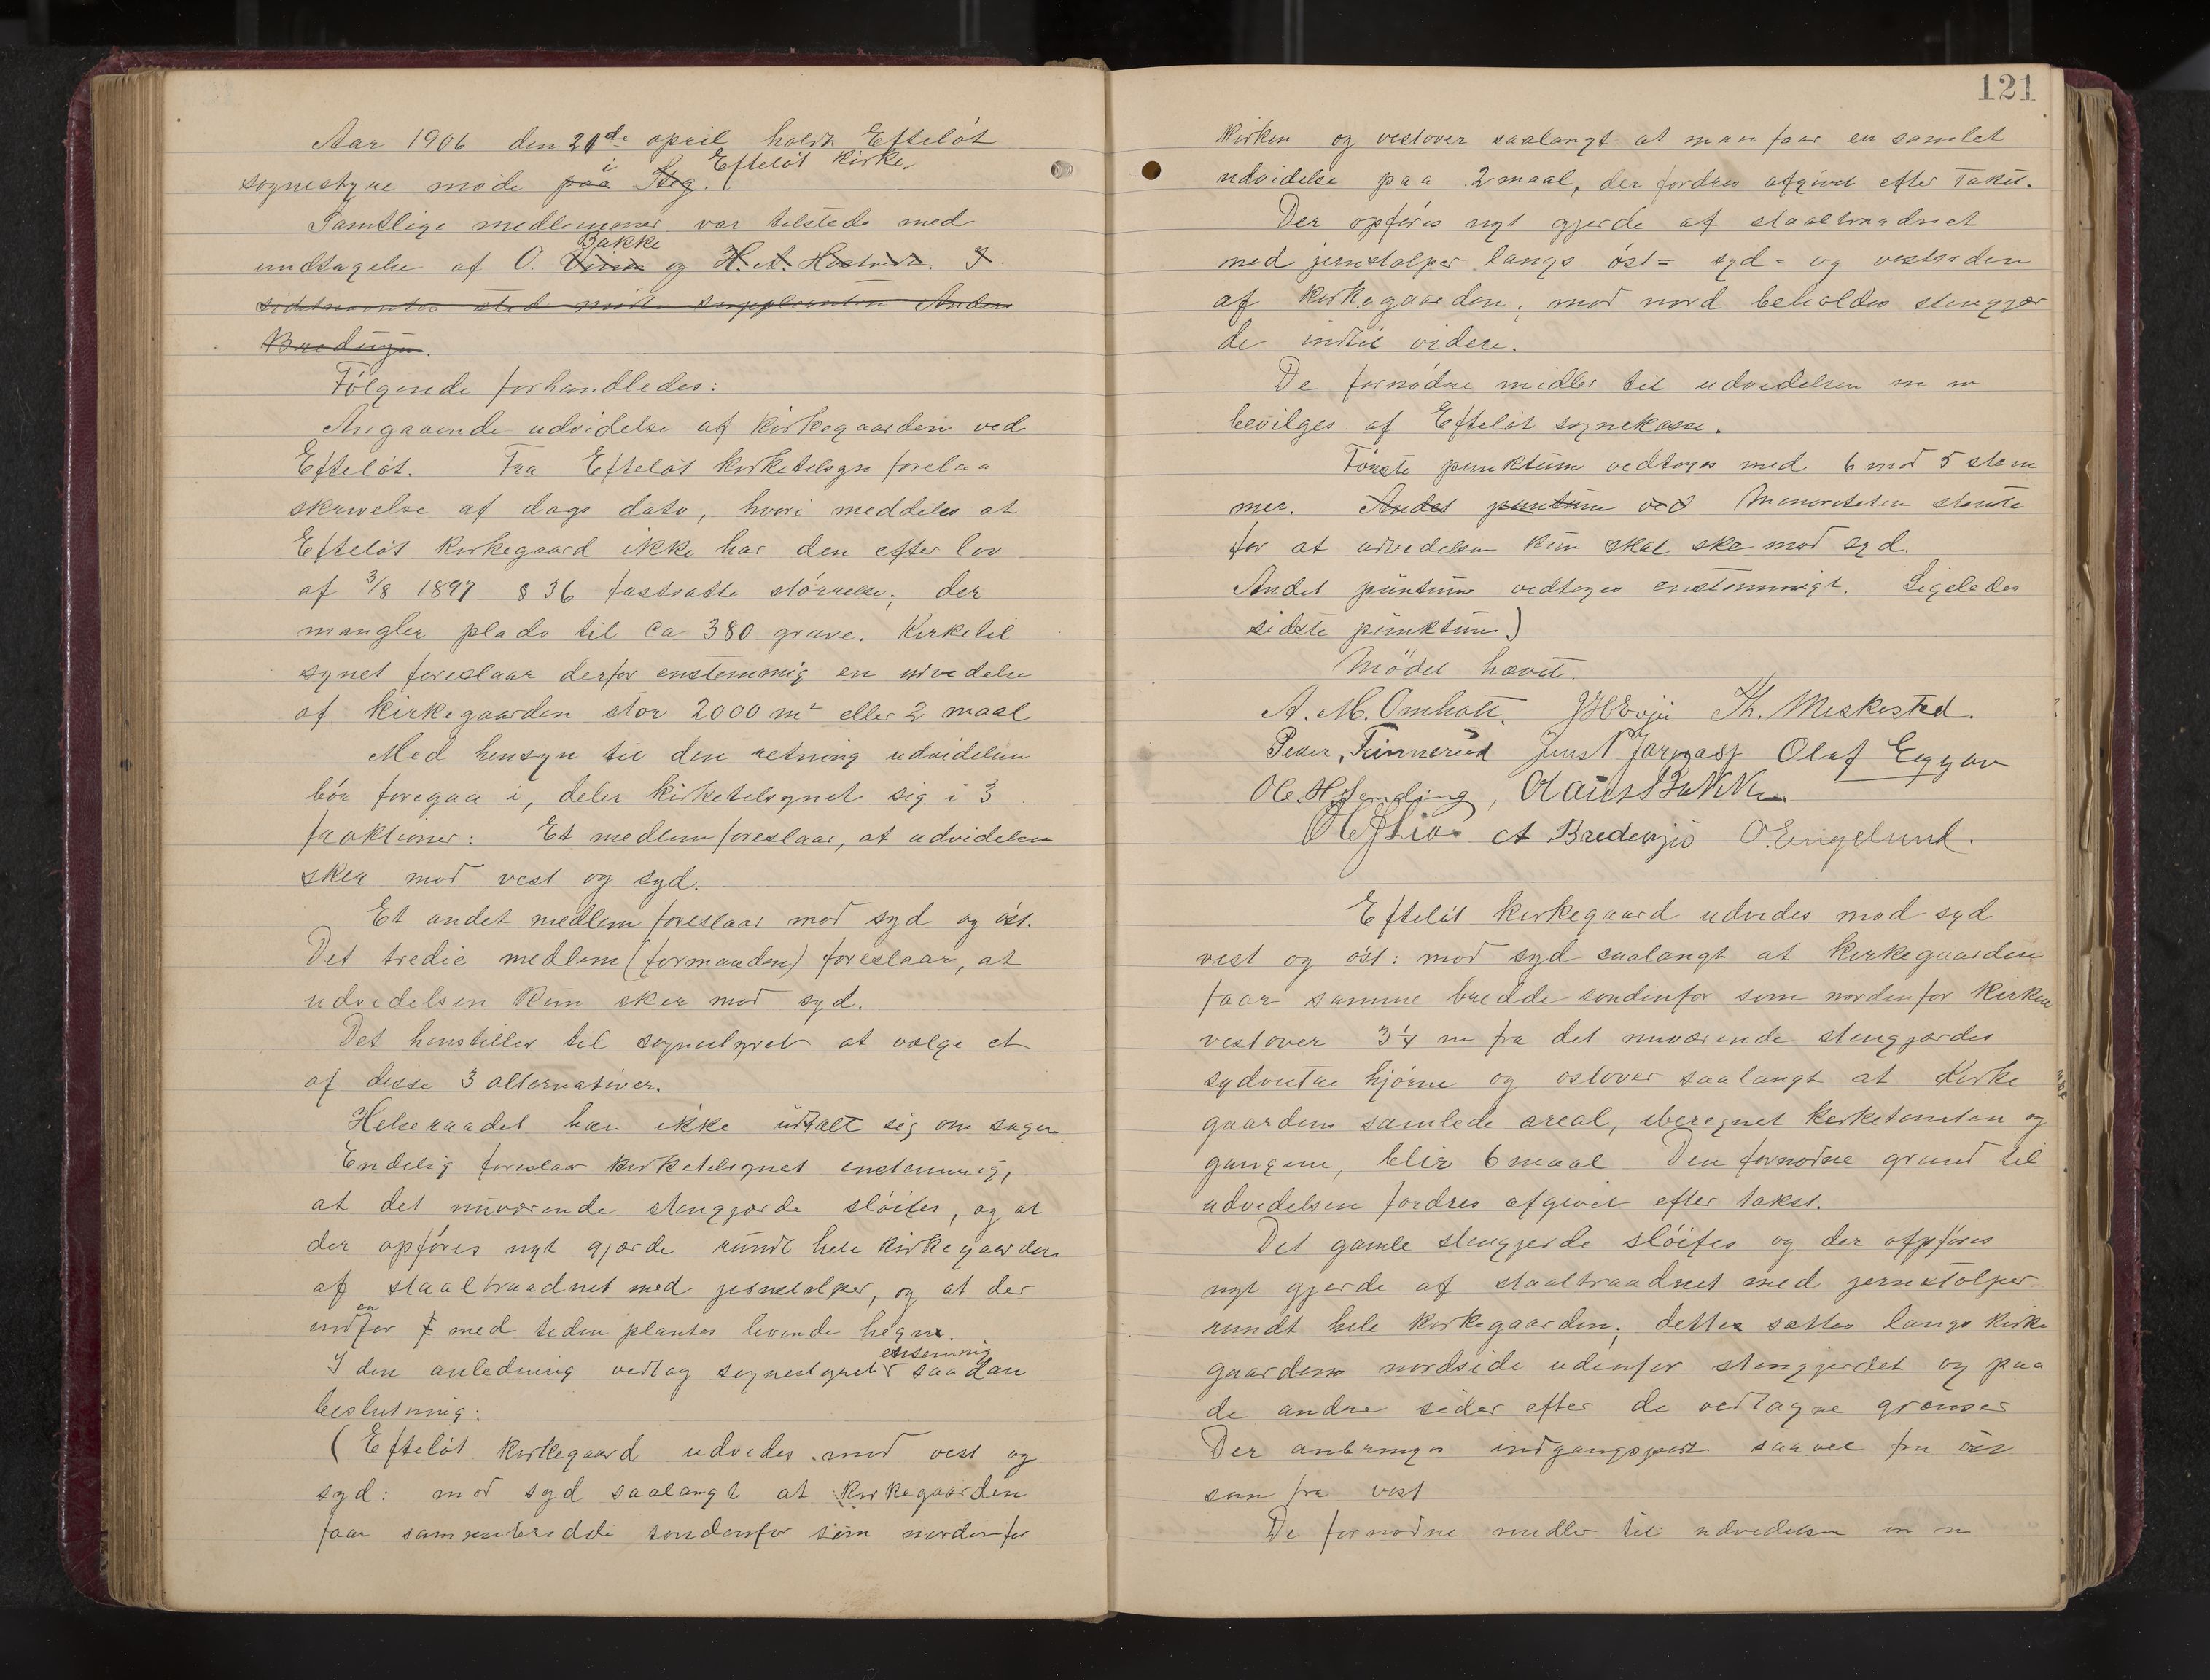 Aar 1906 den 21de april holdt Efteløt
sognestyre møde paa i Steg. Efteløt kirke.
Samtlige medlemmer var tilstede med
undtagelse af O. Bakke og H. A. I
sidstnævntes sted mødte supplianten Anders
Følgende forhandledes:
Angaaende udvidelse af kirkegaarden ved
Efteløt. Fra Efteløt kirketilsyn forelaa
skrivelse af dags dato, hvori meddeles at
Efteløt kirkegaard ikke har den efter lov
af 3/8 1897 § 36 fastsatte størrelse; der
mangler plads til ca 380 grave. Kirketil
synet foreslaar derfor enstemmig en udvidelse
af kirkegaarden stor 2000 m² eller 2 maal
Med hensyn til den retning udvidelsen
bør foregaa i, deler kirketilsynet sig i 3
fraktioner: Et medlem foreslaar, at udvidelsen
sker mod vest og syd.
Et andet medlem foreslaar mod syd og øst.
Det tredie medlem (formanden) foreslaar, at
udvidelsen kun sker mod syd.
Det henstilles til sognestyret at vælge et
af disse 3 alternativer.
Helseraadet har ikke udtalt sig om sagen
Endelig foreslaar kirketilsynet enstemmig,
at det nuværende stengjærde sløifes, og at
der opføres nyt gjærde rundt hele kirkegaarden
af staaltraadnet med jernstolper, og at der
indenfor med tiden plantes levende hegn.
I den anledning vedtog sognestyret enstemmig saadan
beslutning:
(Efteløt kirkegaard udvides mod vest og
syd: mod syd saalangt at kirkegaarden
faar samme bredde søndenfor som nordenfor
121
kirken og vestover saalangt at man faar en samlet
udvidelse paa 2 maal, der fordres afgivet efter Takst.
Der opføres nyt gjerde af staaltraadnet
med jernstolper langs øst= syd= og vestsiden
af kirkegaarden; mod nord beholdes stengjær
de indtil videre.
De fornødne midler til udvidelsen m m
bevilges af Efteløt sognekasse.
Første punktum vedtoges med 6 mod 5 stem
mer. Andet puntum ved Minoriteten stemte
for at udvidelsen kun skal ske mod syd.
Andet puntum vedtoges enstemmigt. Ligeledes
sidste punktum)
Mødet hævet.
A. M. Omholt. Th. Meskestad.
Peder Tinnerud Olaf Eggar
Ole H Sending, Olaus Bakke
A Bredesjø O. Engelund.
Efteløt kirkegaard udvides mod syd
vest og øst: mod syd saalangt at kirkegaarden
faar samme bredde søndenfor som nordenfor kirken
vestover 3 1/4 m fra det nuværende stengjærdes
sydvestre hjørne og østover saalangt at kirke
gaardens samlede areal, iberegnet kirketomten og
gangene, blir 6 maal Den fornødne grund til
udvidelsen fordres afgivet efter takst.
Det gamle stengjerde sløifes og der opføres
nyt gjerde af staaltraadnet med jernstolper
rundt hele kirkegaarden; dette sættes langs kirke
gaardens nordside udenfor stengjerdet og paa
de andre sider efter de vedtagne grænser
Der anbringes indgangsport saavel fra øst
som fra vest
De fornødne midler til udvidelsen m m